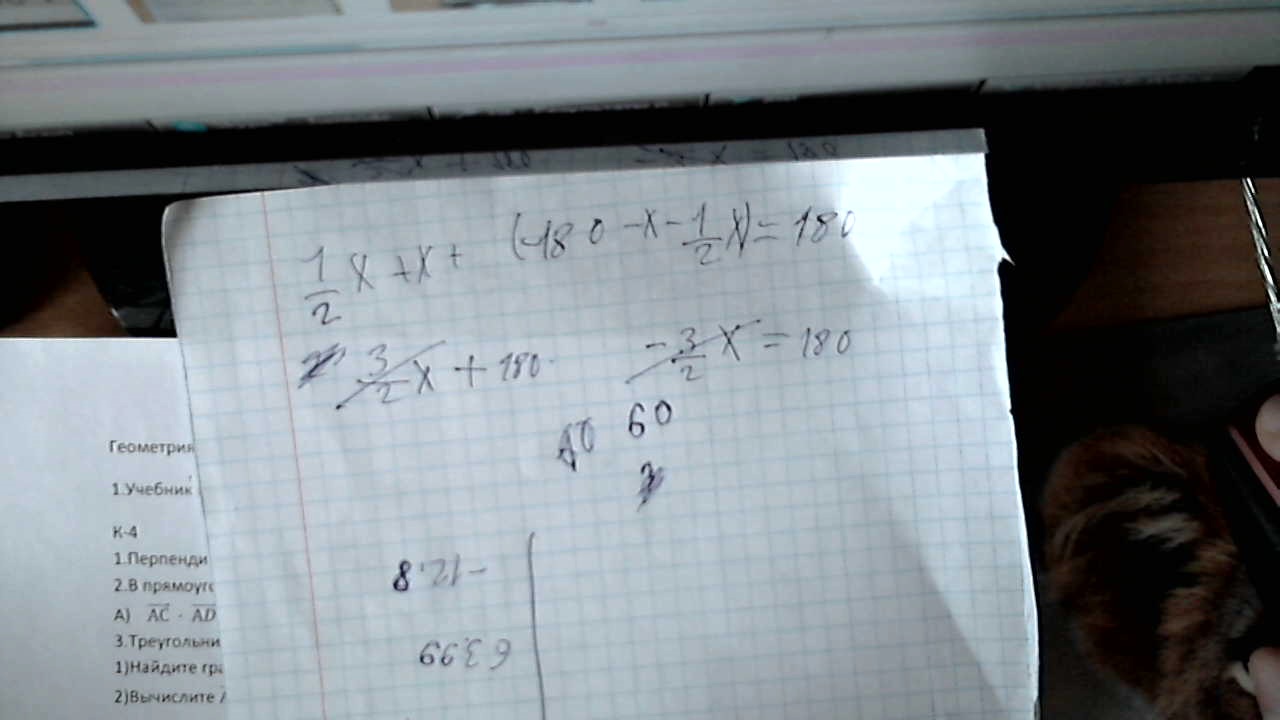 1/2 x + x + (180 - x - 1/2 x) = 180
3/2 x + 180 - 3/2 x = 180
60
Геометрия
1.Учебник
К-4
1.Перпенди
2.В прямоуг
А) AC · AD
3.Треугольни
1)Найдите гра
2)Вычислите
-12.8
63.99